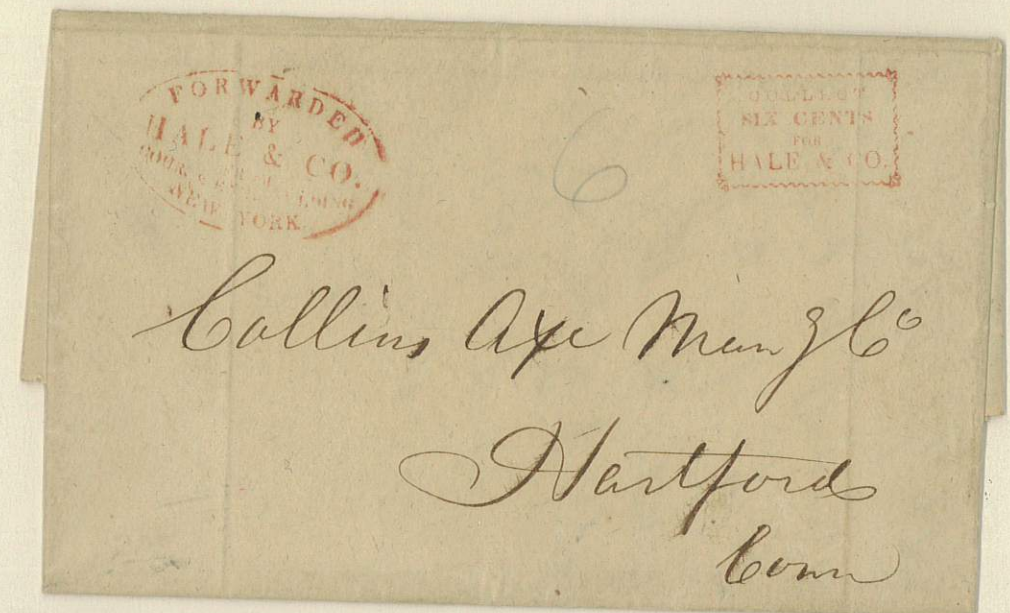 FORWARDED
BY
HALE & CO.
NEW YORK
COLLECT
SIX CENTS
FOR
HALE & CO.
6
Collins Axe Man g Co
Hartford
Conn